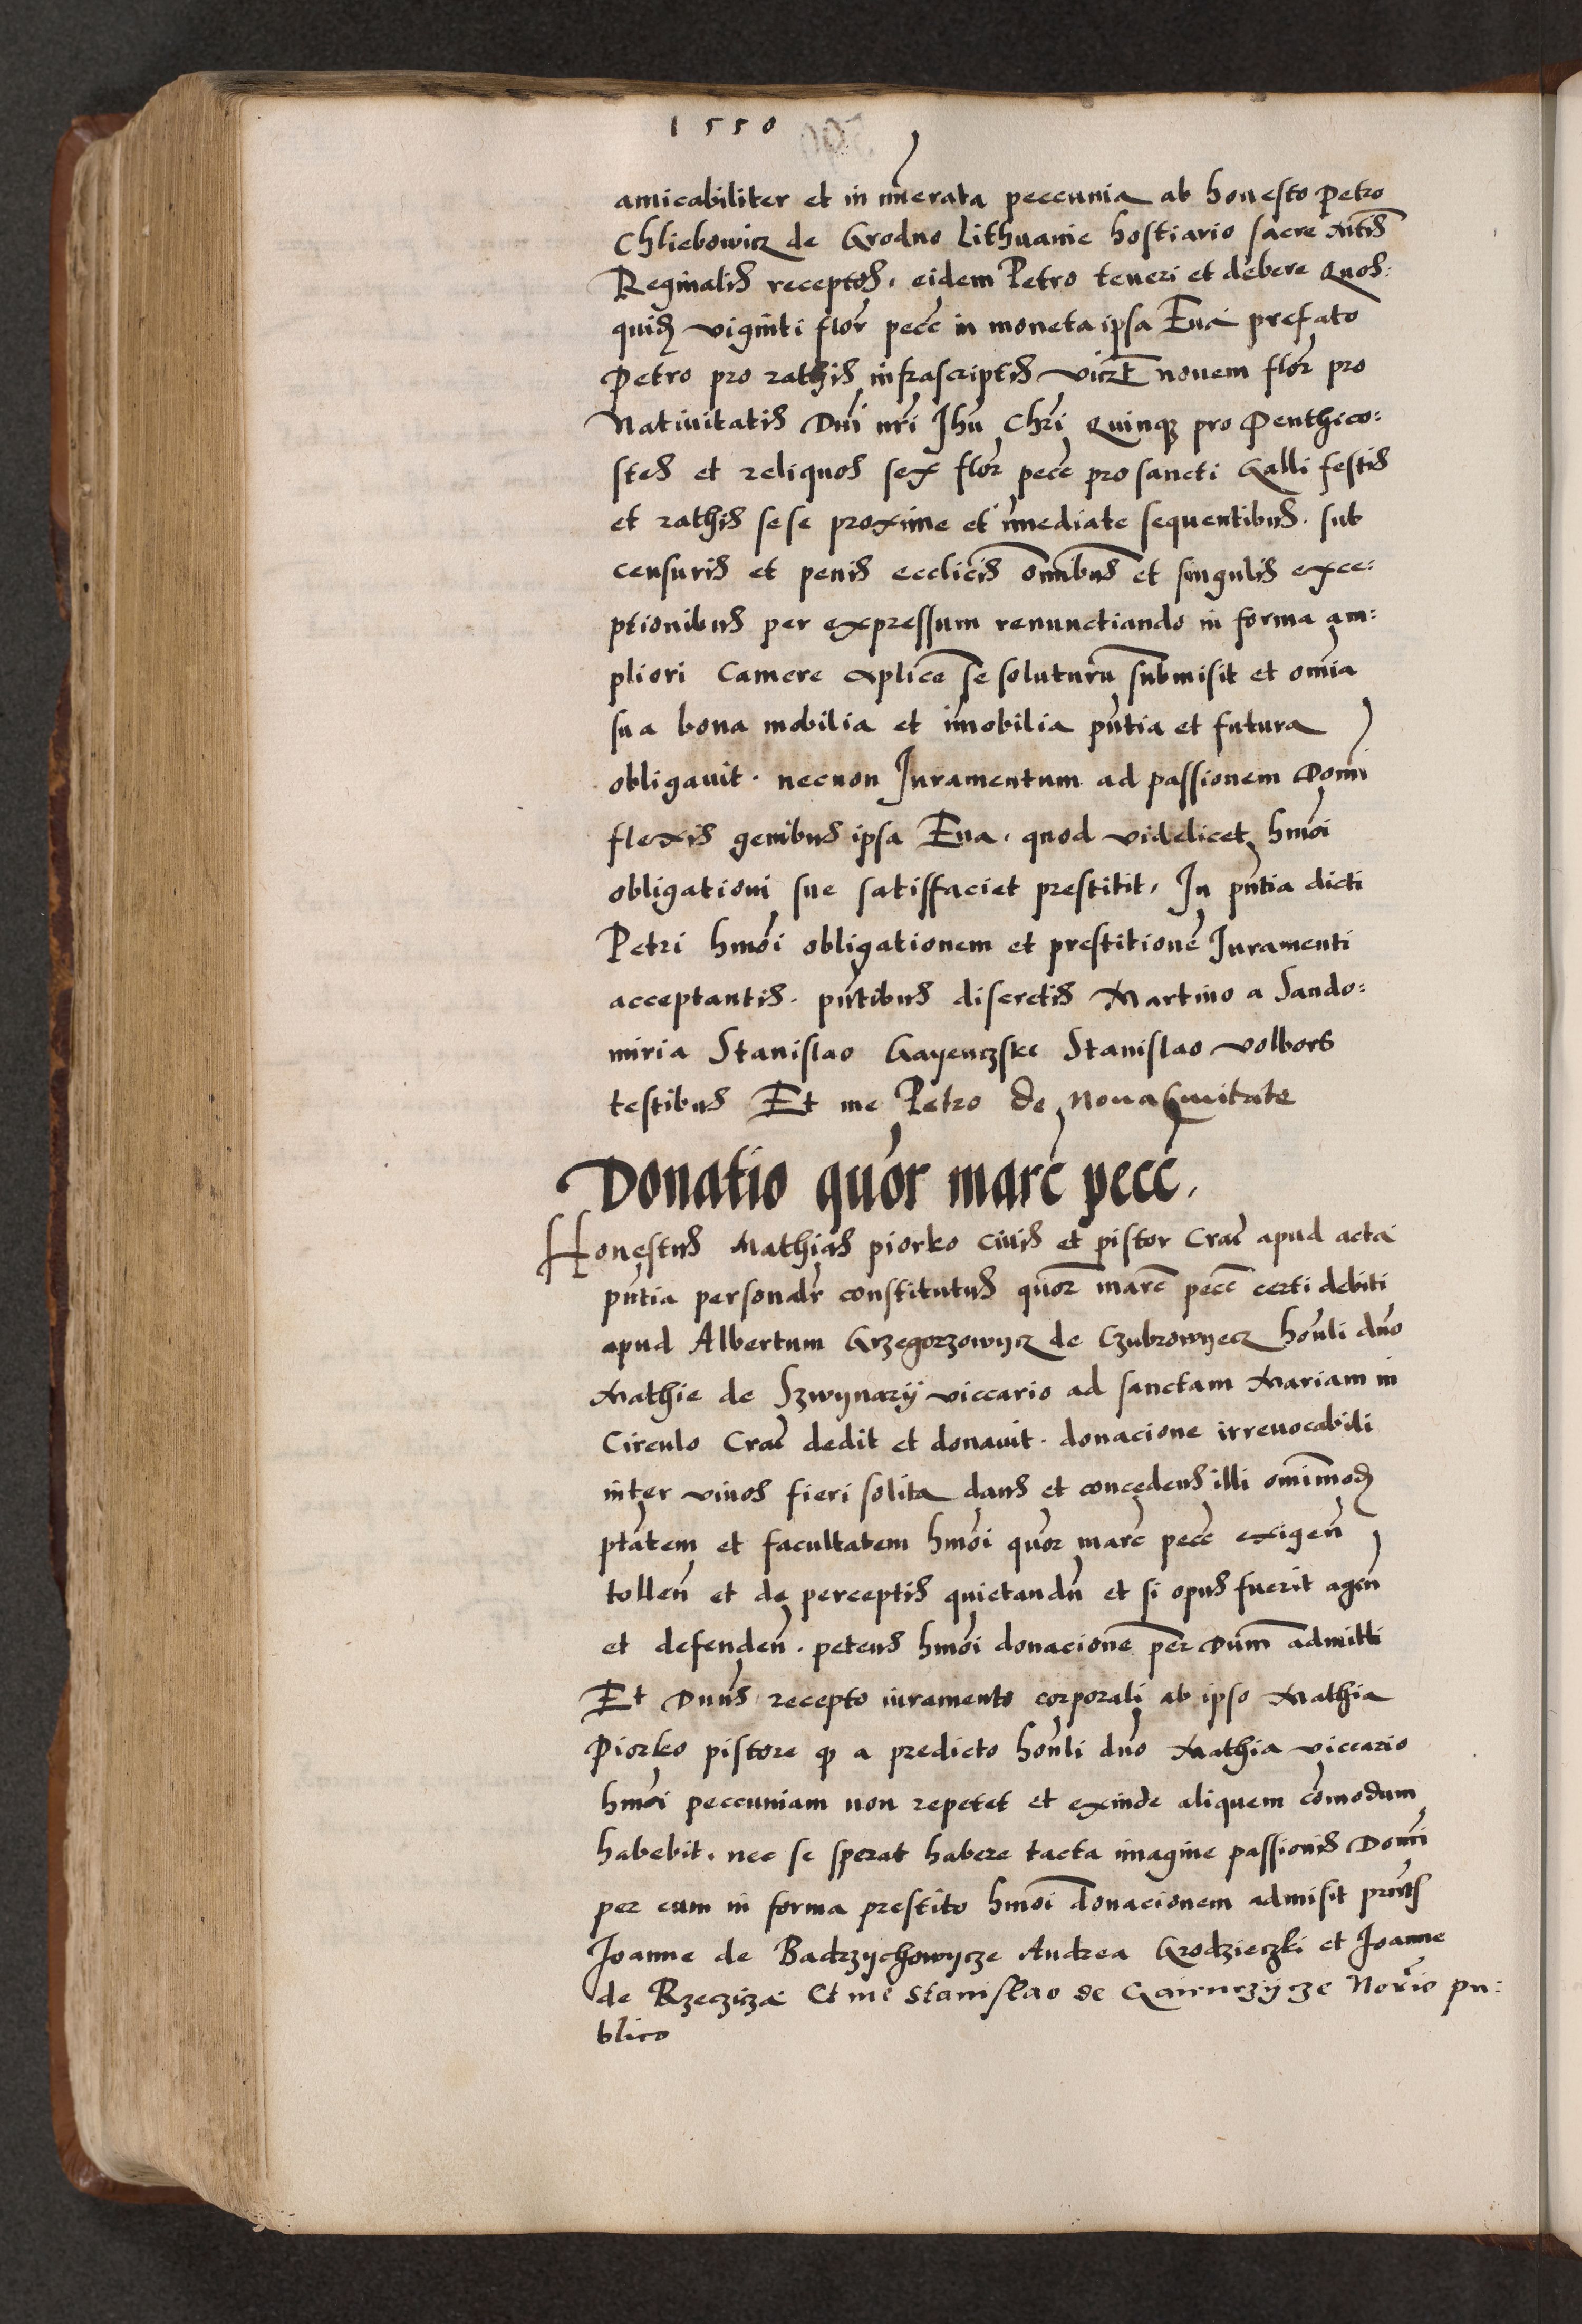 1550
amicabiliter et in nūerata peccunia ab honesto Petro
Chliebowicz de Grodno Lithuanie hostiario sacre Mtis
Reginalis receptos, eidem Petro teneri et debere Quos:
quidẽ viginti flor̃ pecc̃ in moneta ipsa Eua prefato
Petro pro rathis infrascriptis vicz̃t novem flor̃ pro
Nativitatis Dnĩ nr̃i Jhũ Chr̃i Quinq̃ pro Penthico:
stes et reliquos sex flor̃ pecc̃ pro sancti Galli festis
et rathis sese proxime et im̃ediate sequentibus. sub
censuris et penis ecclicis om̃ibus et singulis exce:
ptionibus per expressum renunctiando in forma am:
pliori Camere ap̃lice se soluturũ submisit et om̃ia
sua bona mobilia et im̃obilia pñtia et futura
obligauit. necnon Juramentum ad passionem Domĩ
flexis genibus ipsa Eua. quod videlicet hmõi
obligationi sue satisffaciet prestitit, In pñtia dicti
Petri hmõi obligationem et prestitionẽ Juramenti
acceptantis. pñtibus discretis Martino a Sando:
miria Stanislao Gayenczske Stanislao volbors
testibus Et me Petro de Noua Ciuitate
Donatio quõr marc̃ pecc̃,
Honestus Mathias piorko ciuis et pistor Crac̃ apud acta
pñtia personalr̃ constitutus quõr marc̃ pecc̃ certi debiti
apud Albertum Grzegorzowycz de Czubrowyecz honũli dño
Mathie de Szwynary viccario ad sanctam Mariam in
Circulo Crac̃ dedit et donauit. donacione irreuocabili
inter viuos fieri solita dans et concedens illi om̃imodẽ
ptãtem et facultatem hmõi quõr marc̃ pecc̃ exigeñ
tolleñ et de perceptis quietandũ et si opus fuerit ageñ
et defendeñ. petens hmõi donacionẽ per Dũm admitti
Et Dnũs recepto iuramento corporali ab ipso Mathia
Piorko pistore qͦ a predicto honũli dño Mathia viccario
hmõi peccuniam non repetet et exinde aliquem com̃odum
habebit. nec se sperat habere tacta imagine passionis Domĩ
per eum in forma prestito hmõi donacionem admisit pñtis
Joanne de Badrzychowycze Andrea Grodzieczki et Joanne
de Rzeczicza Et me Stanislao de Norio̊ pu:
blico